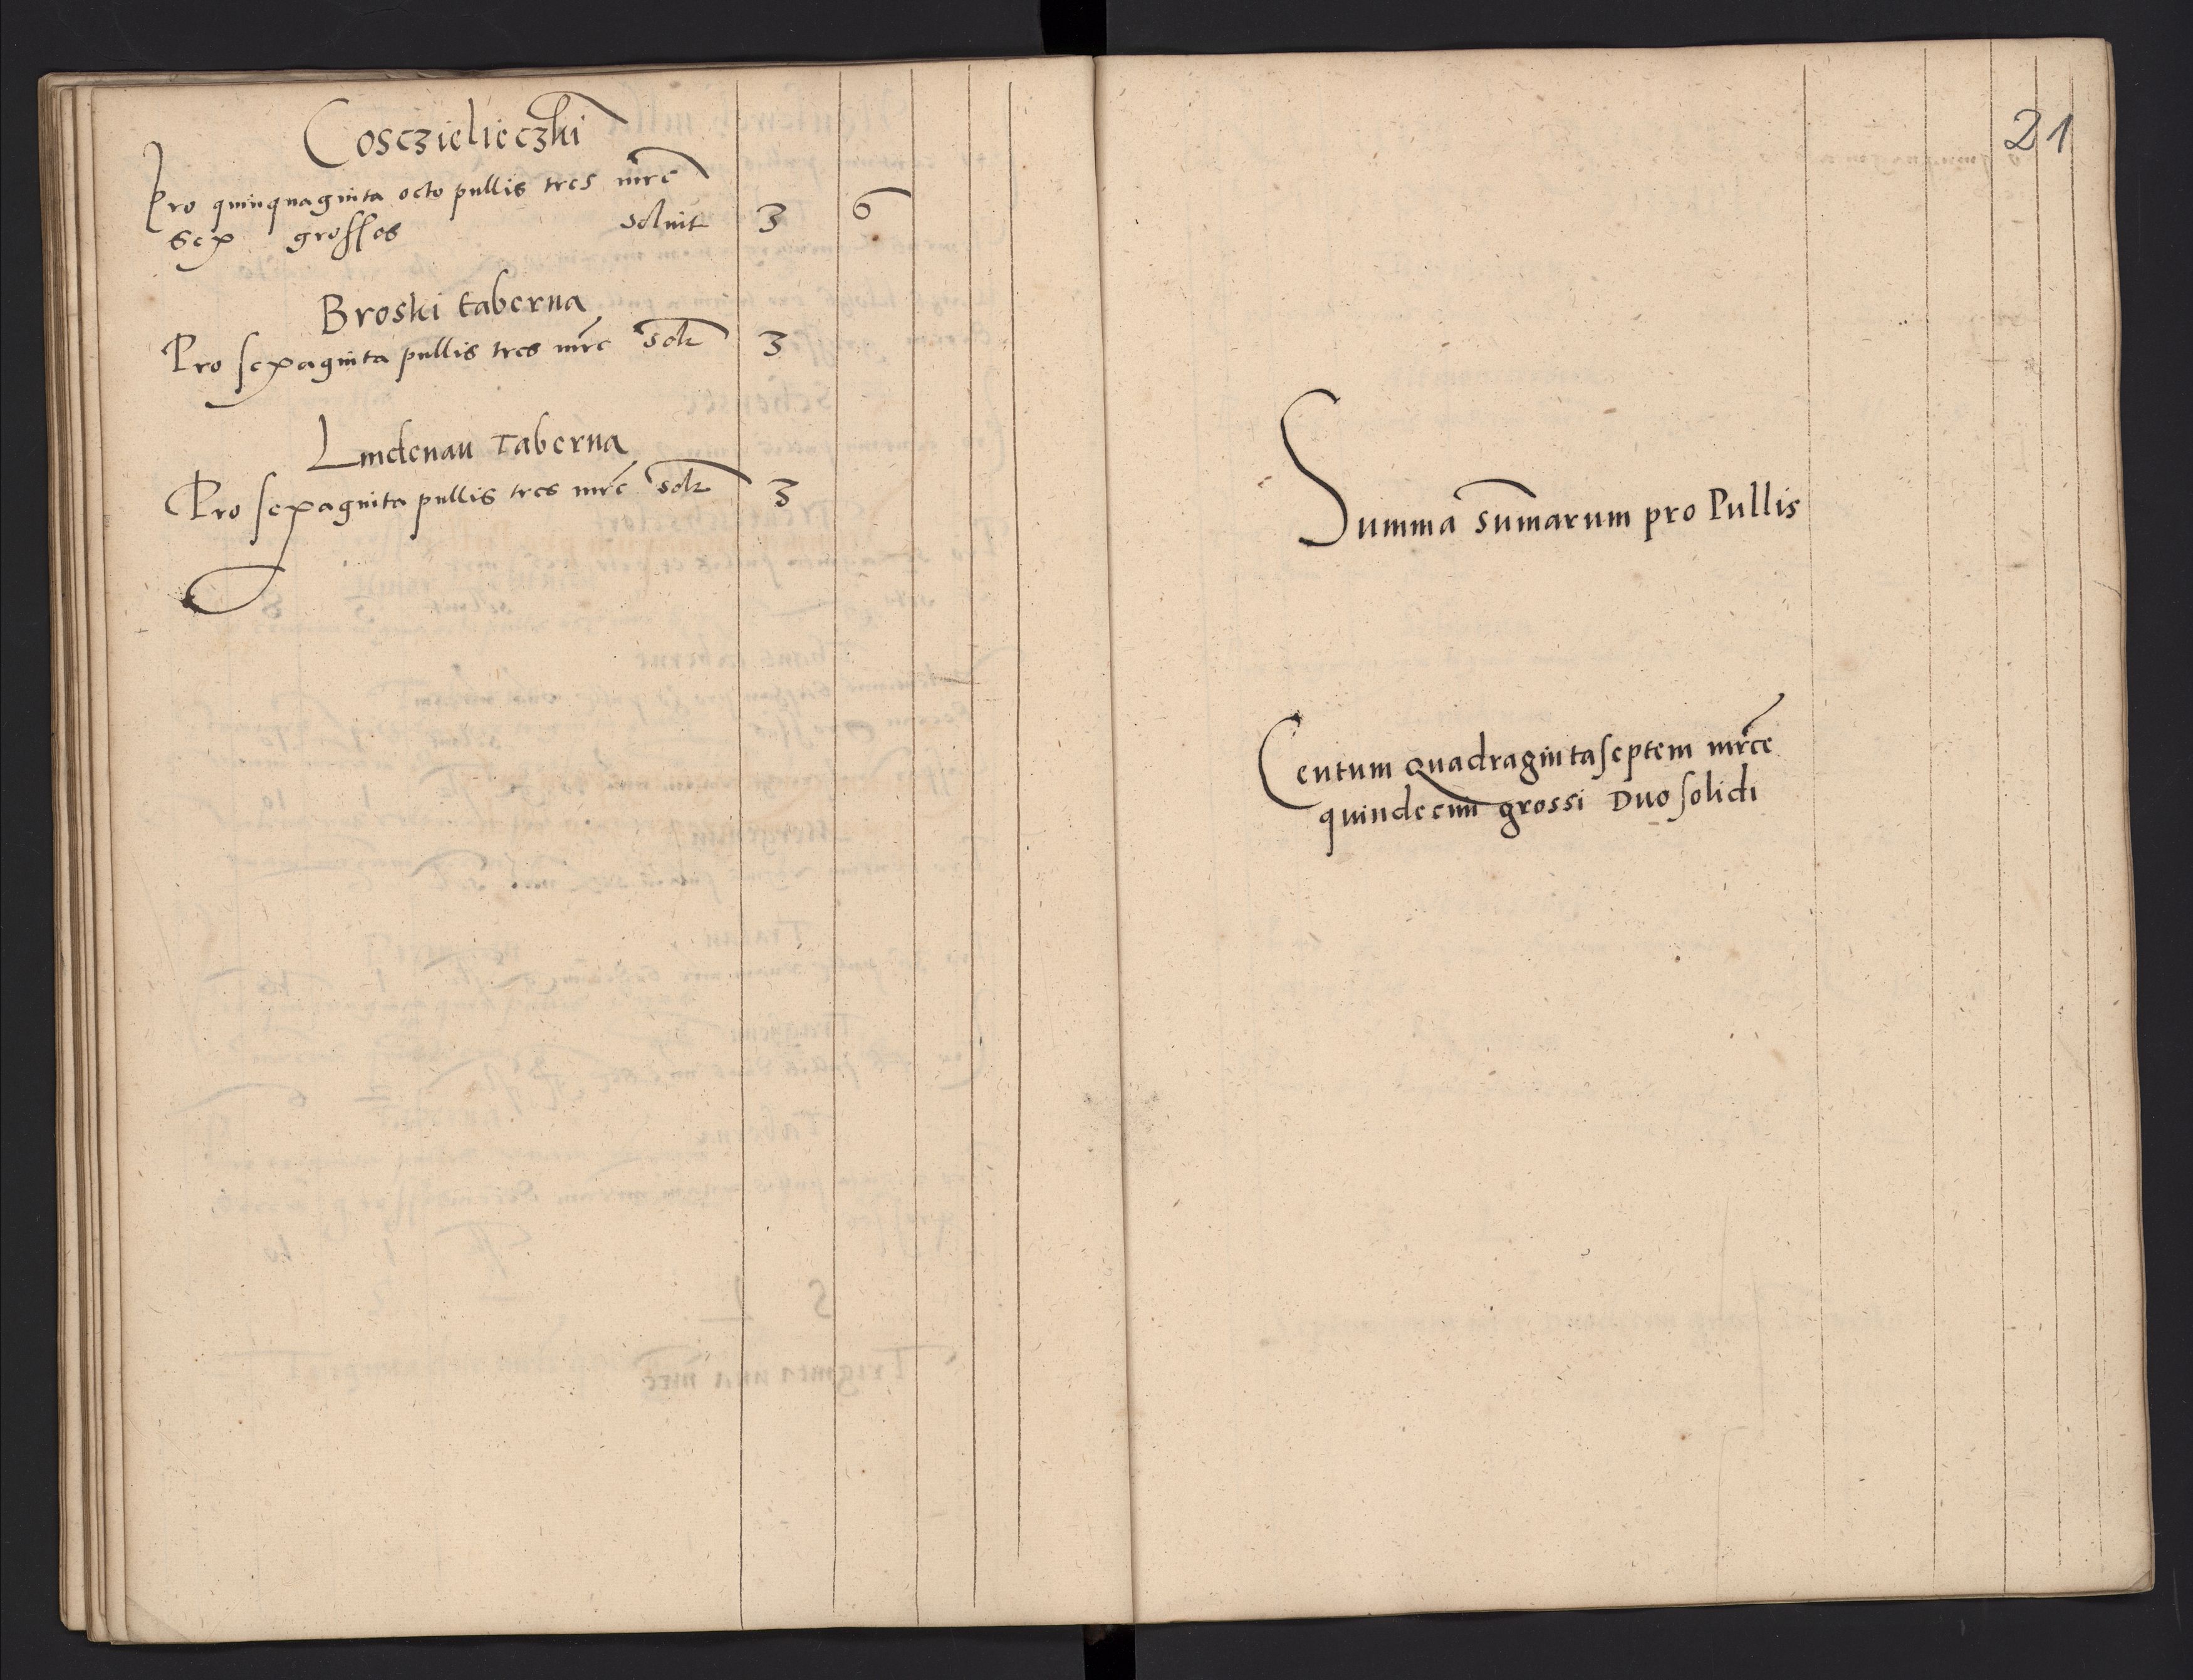 Cosczielieczki
Pro quinquaginta octo pullis tres mrc
sex grosses soluit 3 6
Broski taberna
Pro sexaginta pullis tres mrc solt 3
Lindenau Taberna
Pro sexaginta pullis tres mrc solt 3
21
Summa sumarum pro Pullis
Centum Quadraginta septem mrce
quindecim grossi Duo solidi